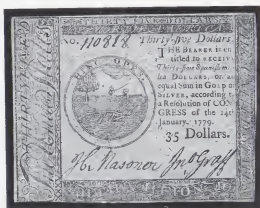 THIRTY-FIVE DOLLARS
No. 110818 Thirty-five Dollars.
THE BEARER is en-
titled to RECEIV
Thirty-five Spanish m
ed DOLLARS, or a
equal Sum in GOLD o
SILVER, according t
a Resolution of CON-
GRESS of the 14
January, 1779.
35 Dollars.
HINC OPES